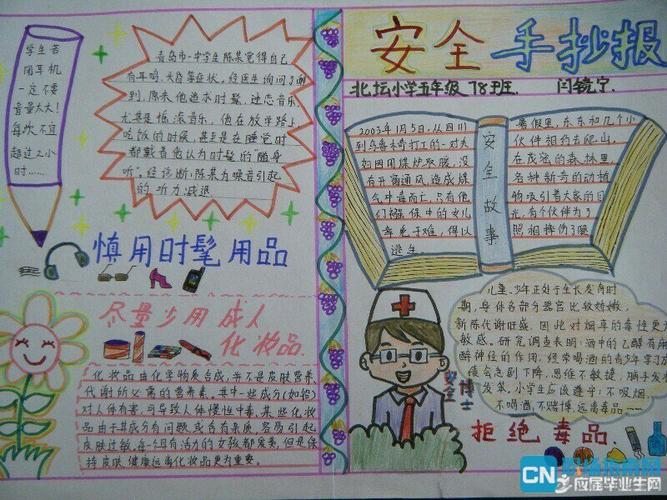 学生若
用耳机
一定不要
音量太大!
每次不宜
超过2小
时……
青岛市一中学生陈某觉得自己
有耳鸣、失聪等症状,经医生询问了解
到,陈某他追求时髦,迷恋音乐,
尤其是摇滚音乐,他在放学路上
吃饭的时候,甚至是在睡觉时
都戴着他认为时髦的"随身
听"。经诊断:陈某为噪音引起
的听力减退
慎用时髦用品
尽量少用成人
化妆品.
化妆品由化学物质合成,并不是皮肤营养、
代谢所必需的营养素,其中一些成分(如铅)
对人体有害,可导致人体慢性中毒,某些化妆
品由于其成分有问题或含有杂质,容易引起
皮肤过敏,每个月有活力的女孩都爱美,但是保
持皮肤健康远离化妆品更为重要。
安全手抄报
北坛小学五年级78班.
闫镜宁.
2003年1月5日,从四川
到乌鲁木齐打工的一对夫
妇因用煤炉取暖,没
有开窗通风,造成煤
气中毒而亡,只有他
们襁褓中的女儿
幸免于难,得以
逃生.
安全故事
暑假里,东东和几个小
伙伴相约去爬山,
在茂密的森林里,
各种新奇的动植
物吸引着大家的目
光,有个伙伴为了
照相摔伤了腿
儿童、少年正处于生长发育时
期,身体各部分器官比较娇嫩,
新陈代谢旺盛,因此对烟草的毒性更为
敏感.研究调查表明:酒中的乙醇有麻
醉神经的作用,经常喝酒的青少年学习成
绩会急剧下降,思维不敏捷,脑子发
发笨,小学生应该遵守:不吸烟、
不喝酒、不赌博、远离毒品……
安全博士
拒绝毒品.
CN
应届毕业生网